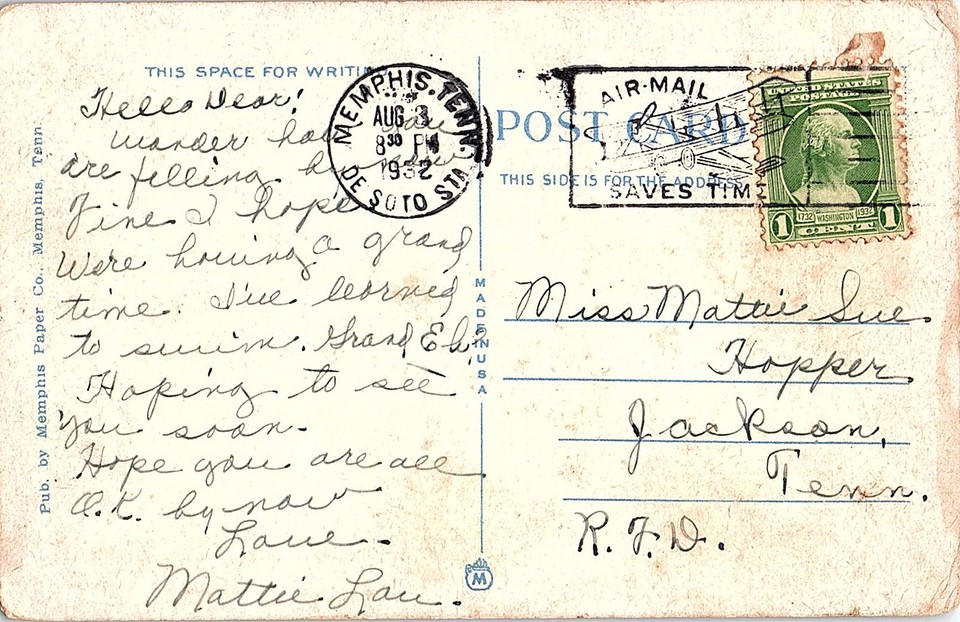 THIS SPACE FOR WRITIN
Hello Dear!
Wonder how you
are filling by now
Fine I hope
Were having a grand
time. I've learned
to swim. Grand Eh?
Hoping to see
you soon.
Hope you are all
O.K. by now
Love.
Mattie Lou.
Pub. by Memphis Paper Co., Memphis, Tenn.
MEMPHIS, TENN.
AUG 3
8 30 PM
1932
DE SOTO STA.
MADE IN USA
M
POST CARD
THIS SIDE IS FOR THE ADDRESS
AIR-MAIL
SAVES TIME
UNITED STATES
POSTAGE
1732 WASHINGTON 1932
1 CENT 1
Miss Mattie Sue
Hopper
Jackson,
Tenn.
R.F.D.